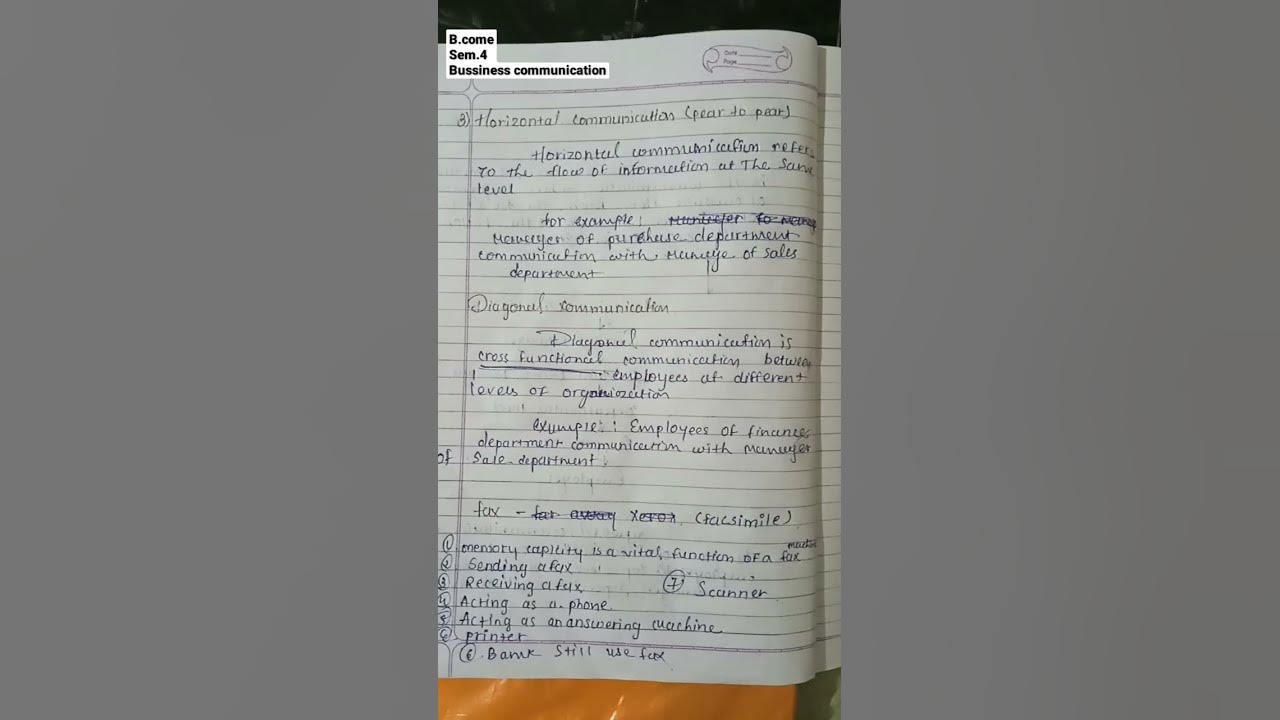 B.come
Sem.4
Bussiness communication
Date
Page
3) Horizontal communication (pear to pear)
Horizontal communication refers
To the flow of information at The same
level
for example: to
Manager of purchase department
communication with Manage of sales
department
Diagonal communication
Diagonal communication is
cross functional communication between
employees at different
levels of organiozation
example: Employees of finance
department communication with Manager
of Sale department
fax - far away Xerox (facsimile)
① memory capicity is a vital function of a fax machine
② Sending a fax
③ Receiving a fax ⑦ Scanner
④ Acting as a phone
⑤ Acting as an answering machine
⑥ printer
⑥ Bank Still use fax